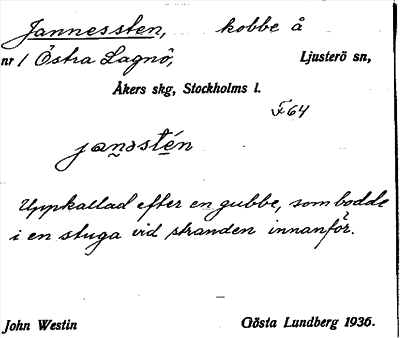 Jannessten, kobbe å
nr 1 Östra Lagnö, Ljusterö sn,
Åkers skg, Stockholms l.
F64
janssten
Uppkallad efter en gubbe, som bodde
i en stuga vid stranden innanför.
John Westin Gösta Lundberg 1936.